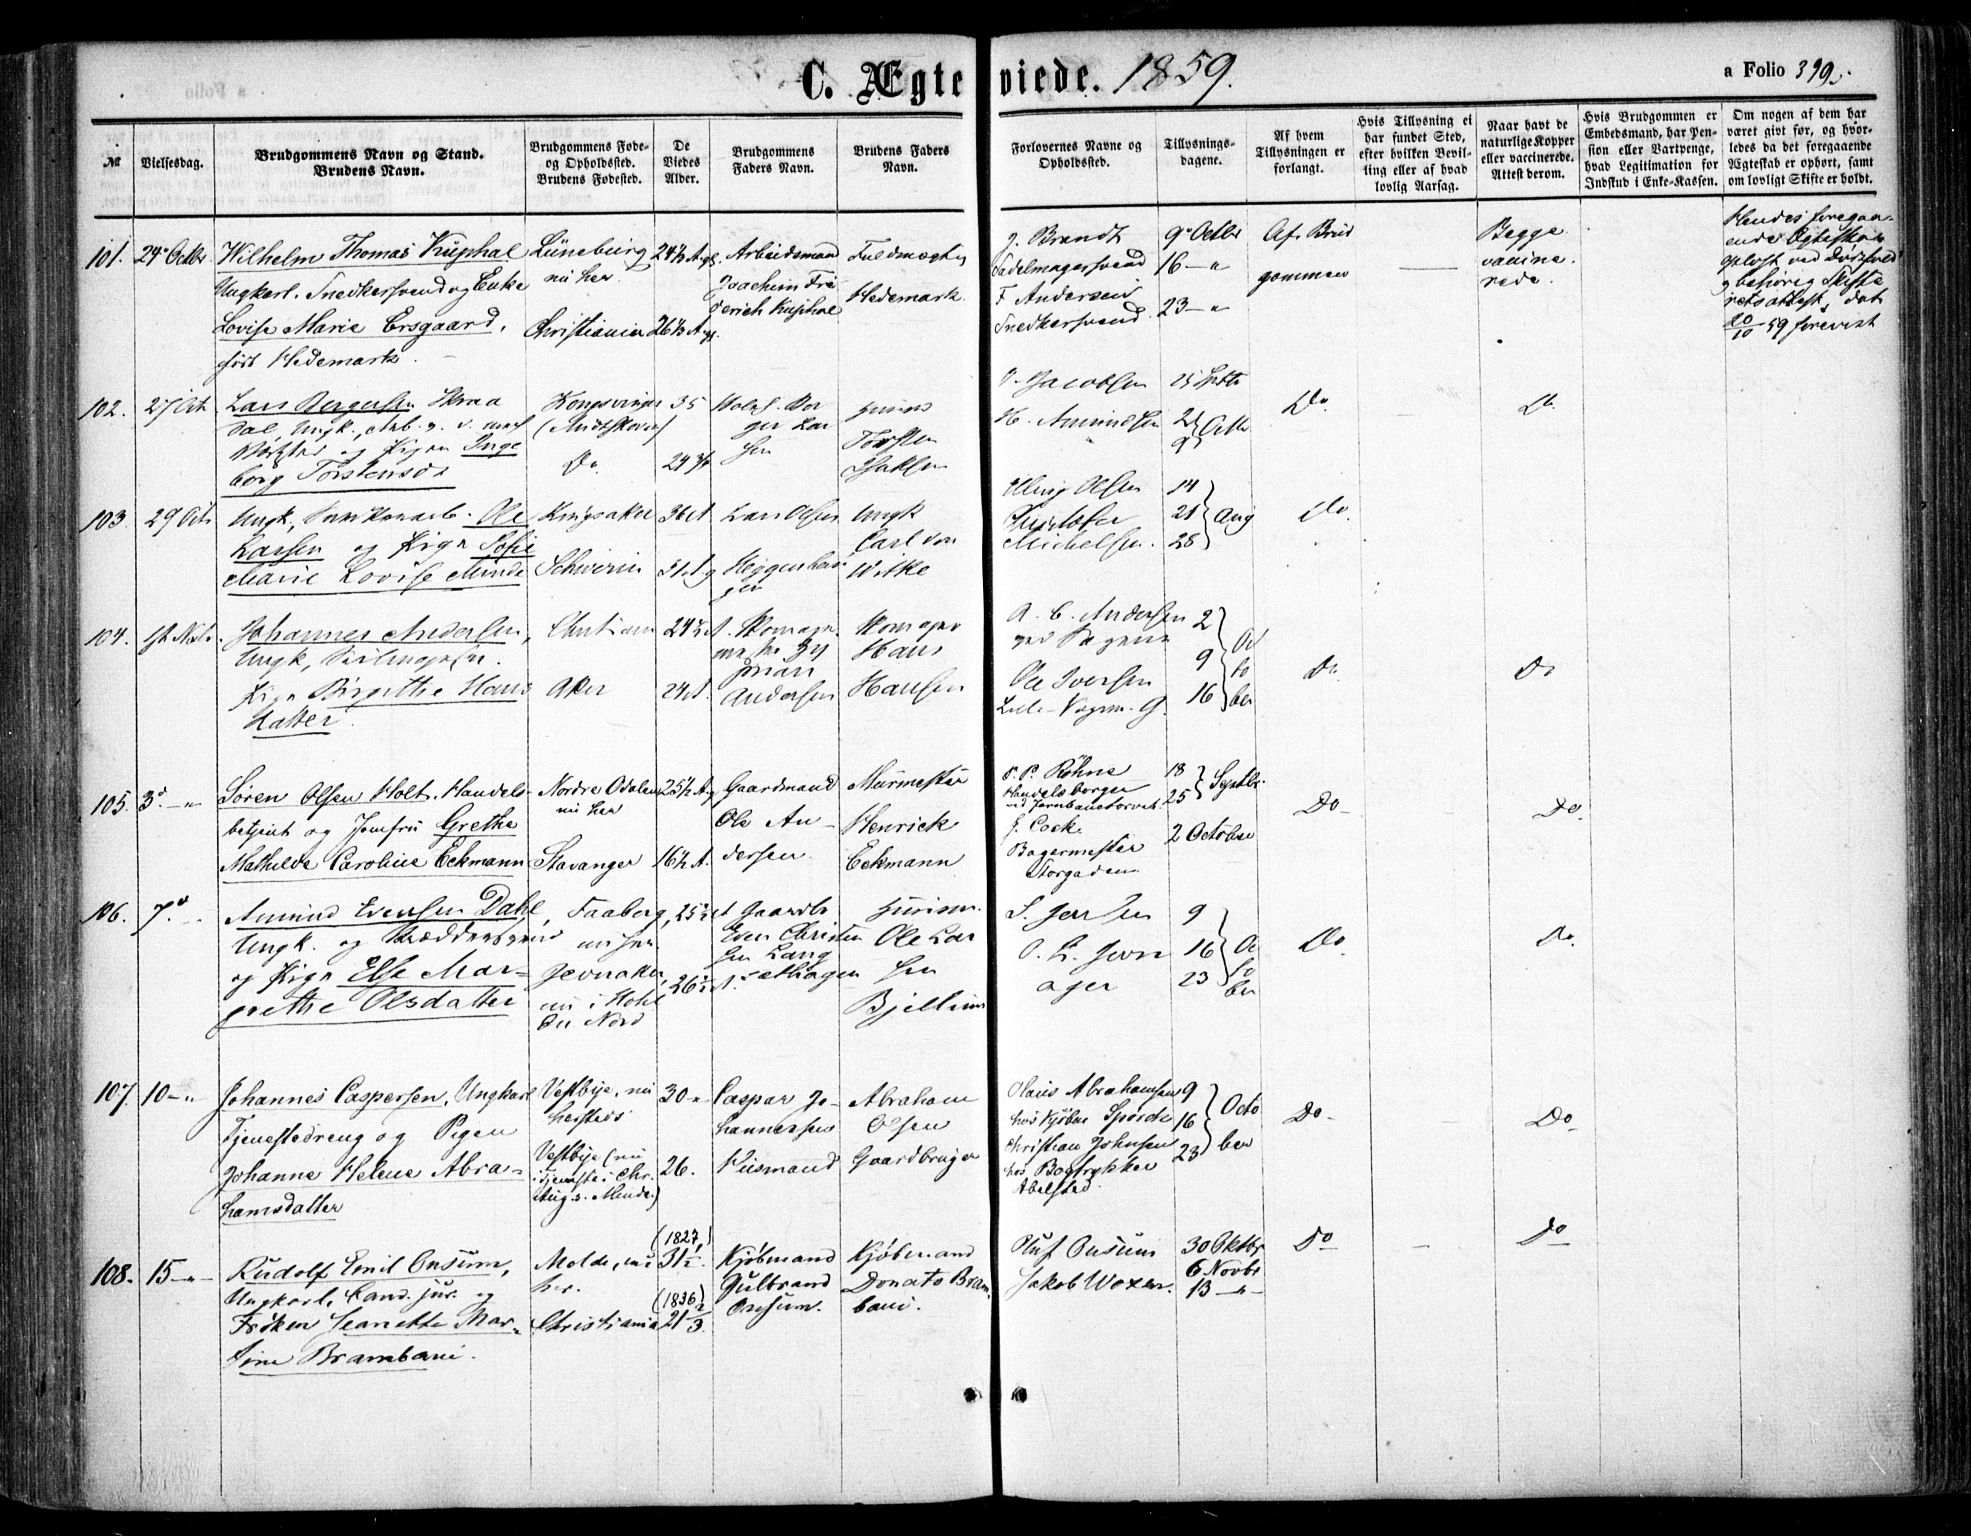 C. Ægteviede. 1859.
a Folio 399.
№
Vielsesdag.
Brudgommens Navn og Stand.
Brudens Navn.
Brudgommens Føde-
og Opholdssted.
Brudens Fødested.
De
Viedes
Alder.
Brudgommens
Faders Navn.
Brudens Faders
Navn.
Forlovernes Navne og
Opholdssted.
Tillysnings-
dagene.
Af hvem
Tillysningen er
forlangt.
Hvis Tillysning ei
har fundet Sted,
efter hvilken Bevil-
ling eller af hvad
lovlig Aarsag.
Naar havt de
naturlige Kopper
eller vaccinerede.
Attest derom.
Hvis Brudgommen er
Embedsmand, har Pen-
sion eller Vartpenge,
hvad Legitimation for
Indskud i Enke-Kassen.
Om nogen af dem har
været givt før, og hvor-
ledes da det foregaaende
Ægteskab er ophørt, samt
om lovligt Skifte er holdt.
101. 24 Octbr
Wilhelm Thomas Kuphal
Ungkarl, Snedkersvend og Enke
Lovise Marie Ersgaard,
født Hedemark.
Lüneburg
nu her
Christiania
24½ A
26½ A
Arbeidsmand
Joachim Fri-
derich Kuphal
Fuldmægtig
Hedemark.
J. Brandt
Sadelmagersvend
F Andersen
Snedkersvend.
9 Octbr
16 - "
23 - "
Af Brud
gommen
Begge
vaccine-
rede.
Hendes foregaa-
ende Ægteskab
opløst ved Dødsfald
og behørig Skifte
rets attest, dat
20/10 59 forevist
102. 27 Oct
Lars Bergersen Skraa
dal, Ungk., Arb.
og Pigen Inge
borg Torstensd
Kongsvinger
Do.
35
24
Ber
ger Lar
sen
Torsten
Isaksen
Jacobsen
H. Amundsen
25 Septbr
2
9
Octbr
Do.
Do
103. 29 Oct
Ungk, Ole
Larsen og Pigen Sofie
Marie Lovise Minde
Ringsaker
Schwerin
36 A
31 A
Lars Olsen
Ungk
Carl von
Witke
Elling Olsen
Christofer
Michelsen.
14
21
28
Aug
Do.
104. 1st Novbr.
Johannes Andersen,
Ungk,
Pigen Birgitte Hans
datter.
Christiania
Aker
24½ A.
24 A.
Skomager
Andersen
Skomager
Hans
Hansen
A. C. Andersen
Ole Iversen
2
9
16
Oc
to
ber
Do.
Do
105. 3d - "
Søren Olsen Holt, Handels-
betjent og Jomfru Grethe
Mathilde Caroline Eckmann
Nordre Odalen
nu her
Stavanger
25½ A.
16½ A.
Gaardmand
Ole An-
dersen
Murmester
Henrick
Eckmann
P. P. Røhne
Handelsborger
ved Jernbanetorvet
J. Cock
Bagermester
Storgaden
18
25
Septbr.
2 October
Do
Do.
106. 7d - "
Amund Evensen Dahl,
Ungk. og Skræddersvend
og Pigen Else Mar-
grethe Olsdatter
Faaberg,
nu her
Jevnaker,
nu i Hol
25½ A
26½ A.
Gaardbr
Even Christen
sen Lang
sethagen
Husm.
Ole Lar
sen
Bjellum
S. Jensen
O. L. Jern
ager
9
16
23
Oc
to
ber
Do
Do.
107. 10 - "
Johannes Caspersen, Ungkarl
Tjenestedreng og Pigen
Johanne Helene Abra-
hamsdatter
Vestbye, nu
hersteds
Vestbye (nu
i tjeneste i Chr.
30 -
26.
Caspar Jo-
hannessen
Husmand
Abraham
Olsen
Gaardbruger
Olaus Abrahamsen
hos Kjøbm Spørck
Christian Johnsen
hos Bogtrykker
Abelsted.
9
16
23
Octo
ber
Do
Do
108. 15 - "
Rudolf Emil Onsum,
Ungkarl, Cand. jur. og
Frøken Jeanette Mar-
tine Brambani.
Molde, nu
her.
Christiania
(1827)
31½.
(1836)
21 2/3.
Kjøbmand
Gulbrand
Onsum.
Kjøbmand
Donato Bram-
bani.
Oluf Onsum
Jakob Woxen.
30 Oktbr
6 Novbr
13 - "
Do
Do